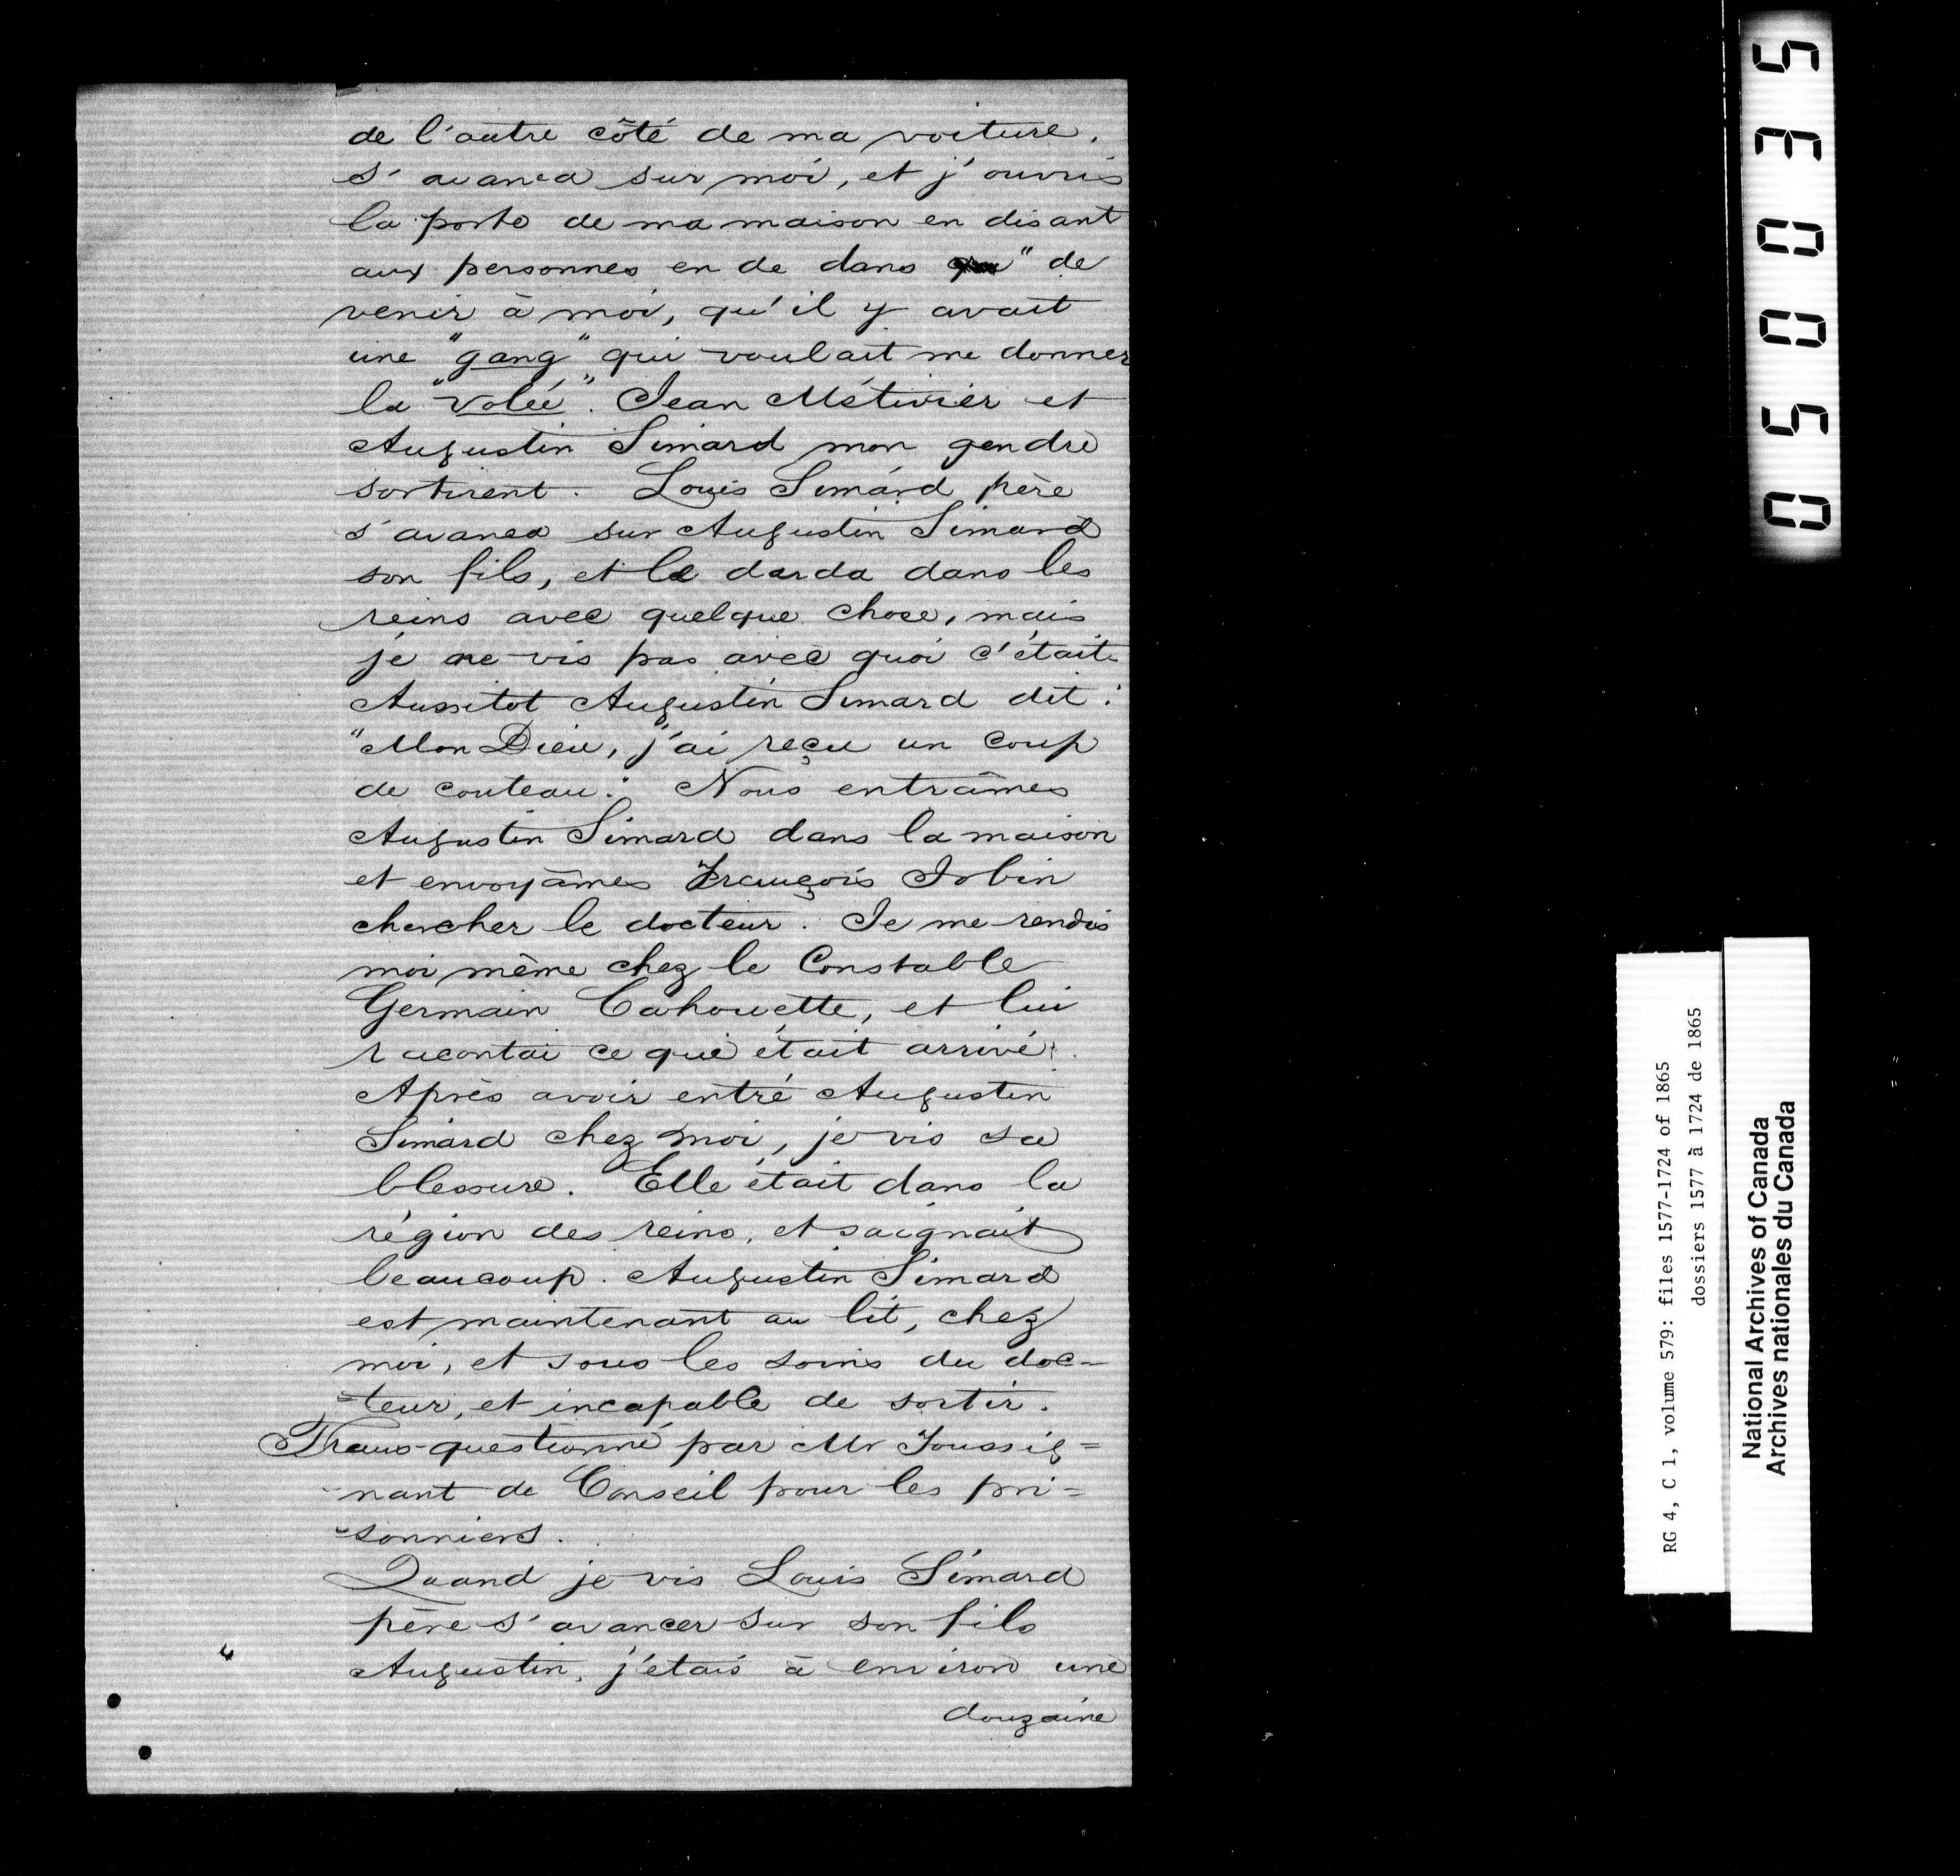 de l'autre côté de ma voiture.
s'avanca sur moi, et j'ouvris
la porte de ma maison en disant
aux personnes en de dans " de
venir à moi, qu'il y avait
une "gang" qui voulait me donner
la "volée". Jean Métivier et
Augustin Simard mon gendre
sortirent. Louis Simard père
s'avanca sur Augustin Simard
son fils, et le darda dans les
reins avec quelque chose, mais
je ne vis pas avec quoi c'était.
Aussitot Augustin Simard dit:
"Mon Dieu, j'ai reçu un coup
de couteau." Nous entrâmes
Augustin Simard dans la maison
et envoyâmes François Jobin
chercher le docteur. Je me rendis
moi même chez le Constable
Germain Cahouette, et lui
racontai ce qui était arrivé.
Après avoir entré Augustin
Simard chez moi, je vis sa
blessure. Elle était dans la
région des reins, et saignait
beaucoup. Augustin Simard
est maintenant au lit, chez
moi, et sous les soins du doc-
-teur, et incapable de sortir.
Trans-questionné par Mr Toussig=
nant de Conseil pour les pri=
=sonniers.
Quand je vis Louis Simard
père s'avancer sur son fils
Augustin, j'etais à environ une
douzaine
50050
RG 4, C 1, volume 579: files 1577-1724 of 1865
dossiers 1577 à 1724 de 1865
National Archives of Canada
Archives nationales du Canada